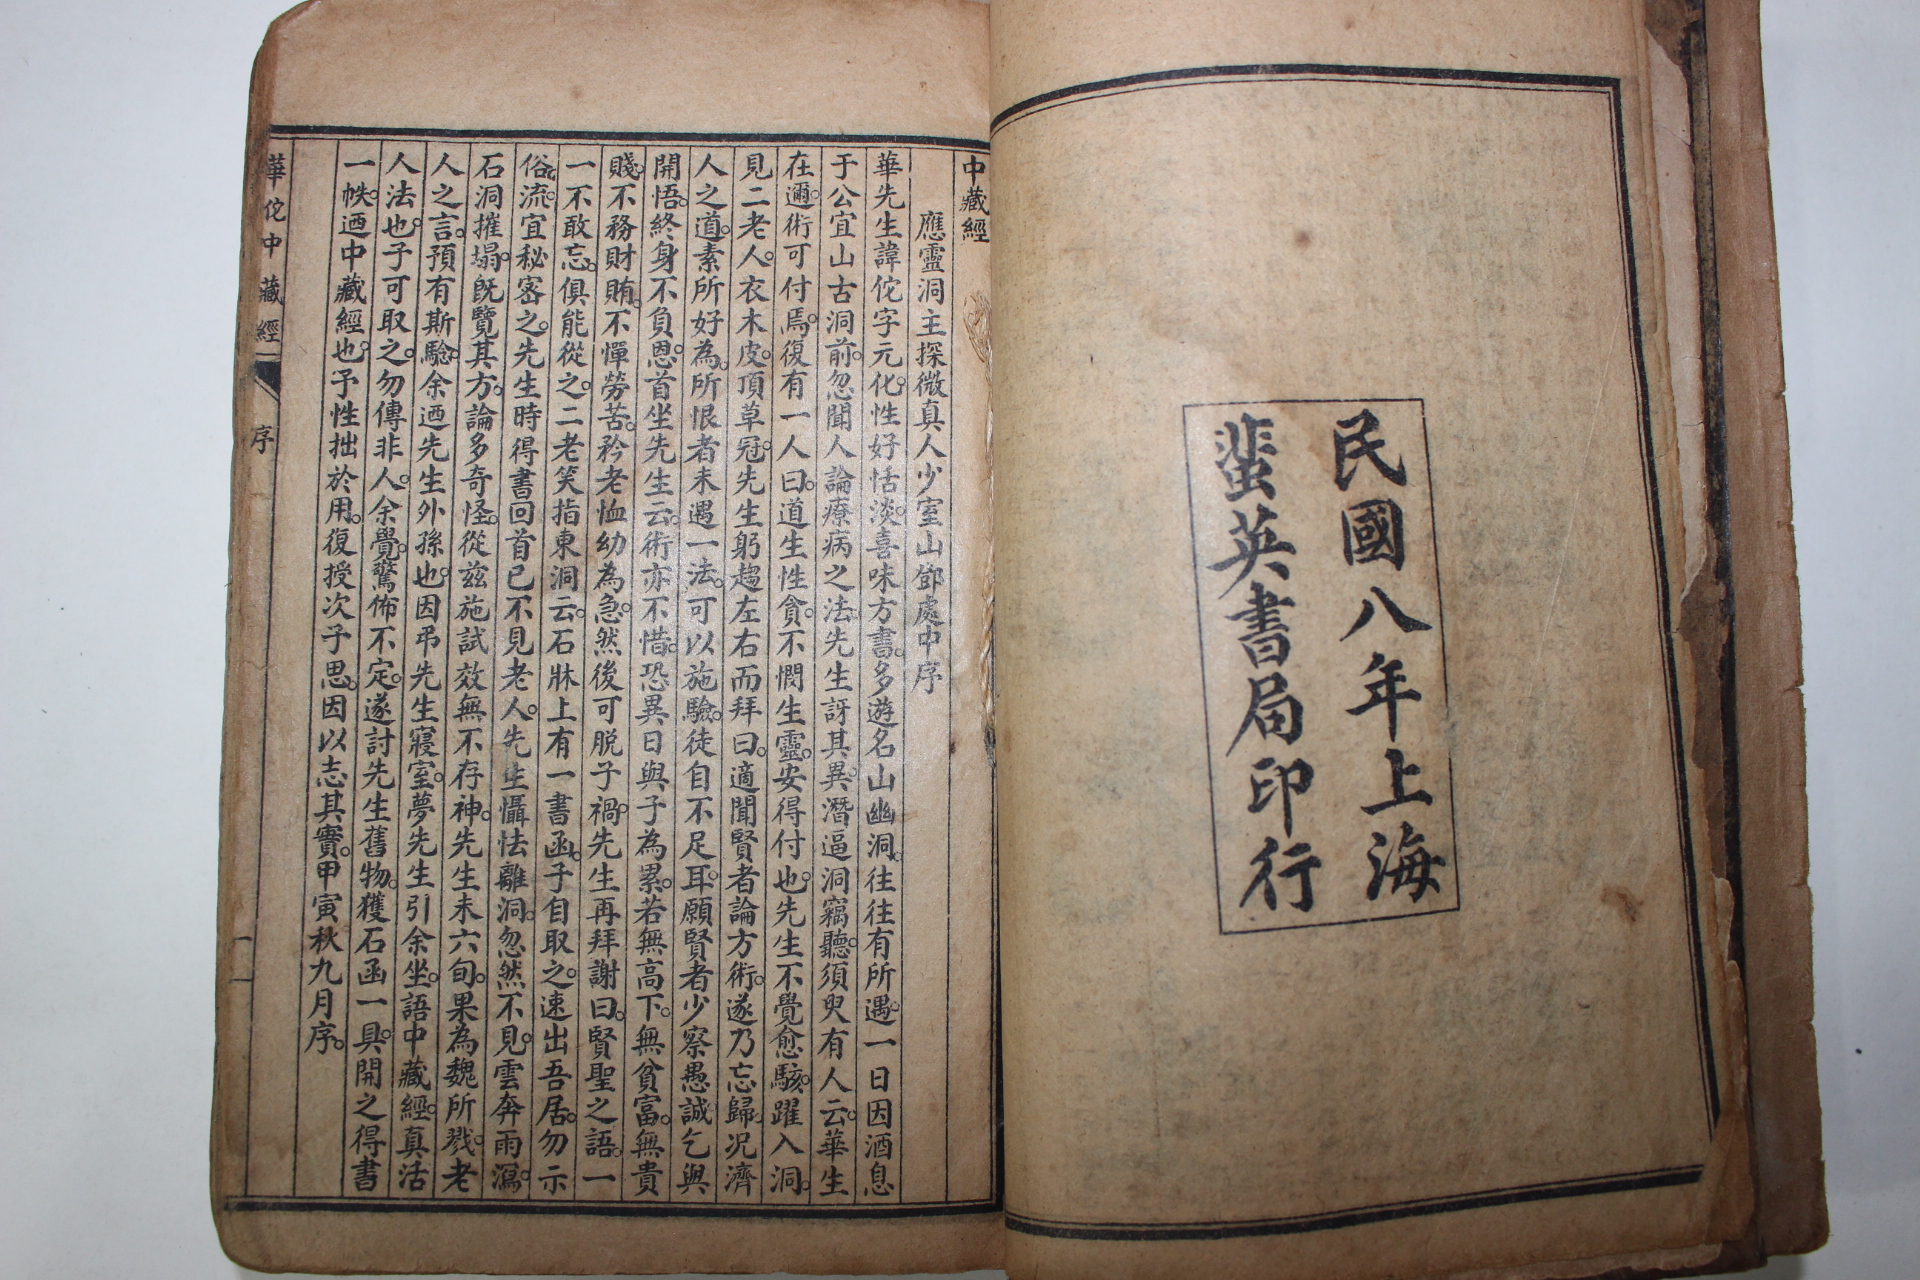 民國八年上海
蜚英書局印行
中藏經
應靈洞主探微真人少室山鄧處中序
華先生諱佗字元化性好恬淡喜味方書多遊名山幽洞往往有所遇一日因酒息
于公宜山古洞前忽聞人論療病之法先生訝其異潛逼洞竊聽須臾有人云華生
在邇術可付焉復有一人曰道生性貪不憫生靈安得付也先生不覺愈駭躍入洞
見二老人衣木皮頂草冠先生躬趨左右而拜曰適聞賢者論方術遂乃忘歸況濟
人之道素所好為所恨者未遇一法可以施驗徒自不足耳願賢者少察愚誠乞與
開悟終身不負恩首坐先生云術亦不惜恐異日與子為累若無高下無貧富無貴
賤不務財賄不憚勞苦矜老恤幼為急然後可脫子禍先生再拜謝曰賢聖之語一
一不敢忘俱能從之二老笑指東洞云石牀上有一書函子自取之速出吾居勿示
俗流宜秘密之先生時得書回首已不見老人先生懾怯離洞忽然不見雲奔雨瀉
石洞摧塌既覽其方論多奇怪從茲施試效無不存神先生未六旬果為魏所戮老
人之言預有斯驗余迺先生外孫也因弔先生寢室夢先生引余坐語中藏經真活
人法也子可取之勿傳非人余覺驚怖不定遂討先生舊物獲石函一具開之得書
一帙迺中藏經也予性拙於用復授次子思因以志其實甲寅秋九月序
華佗中藏經
序
一